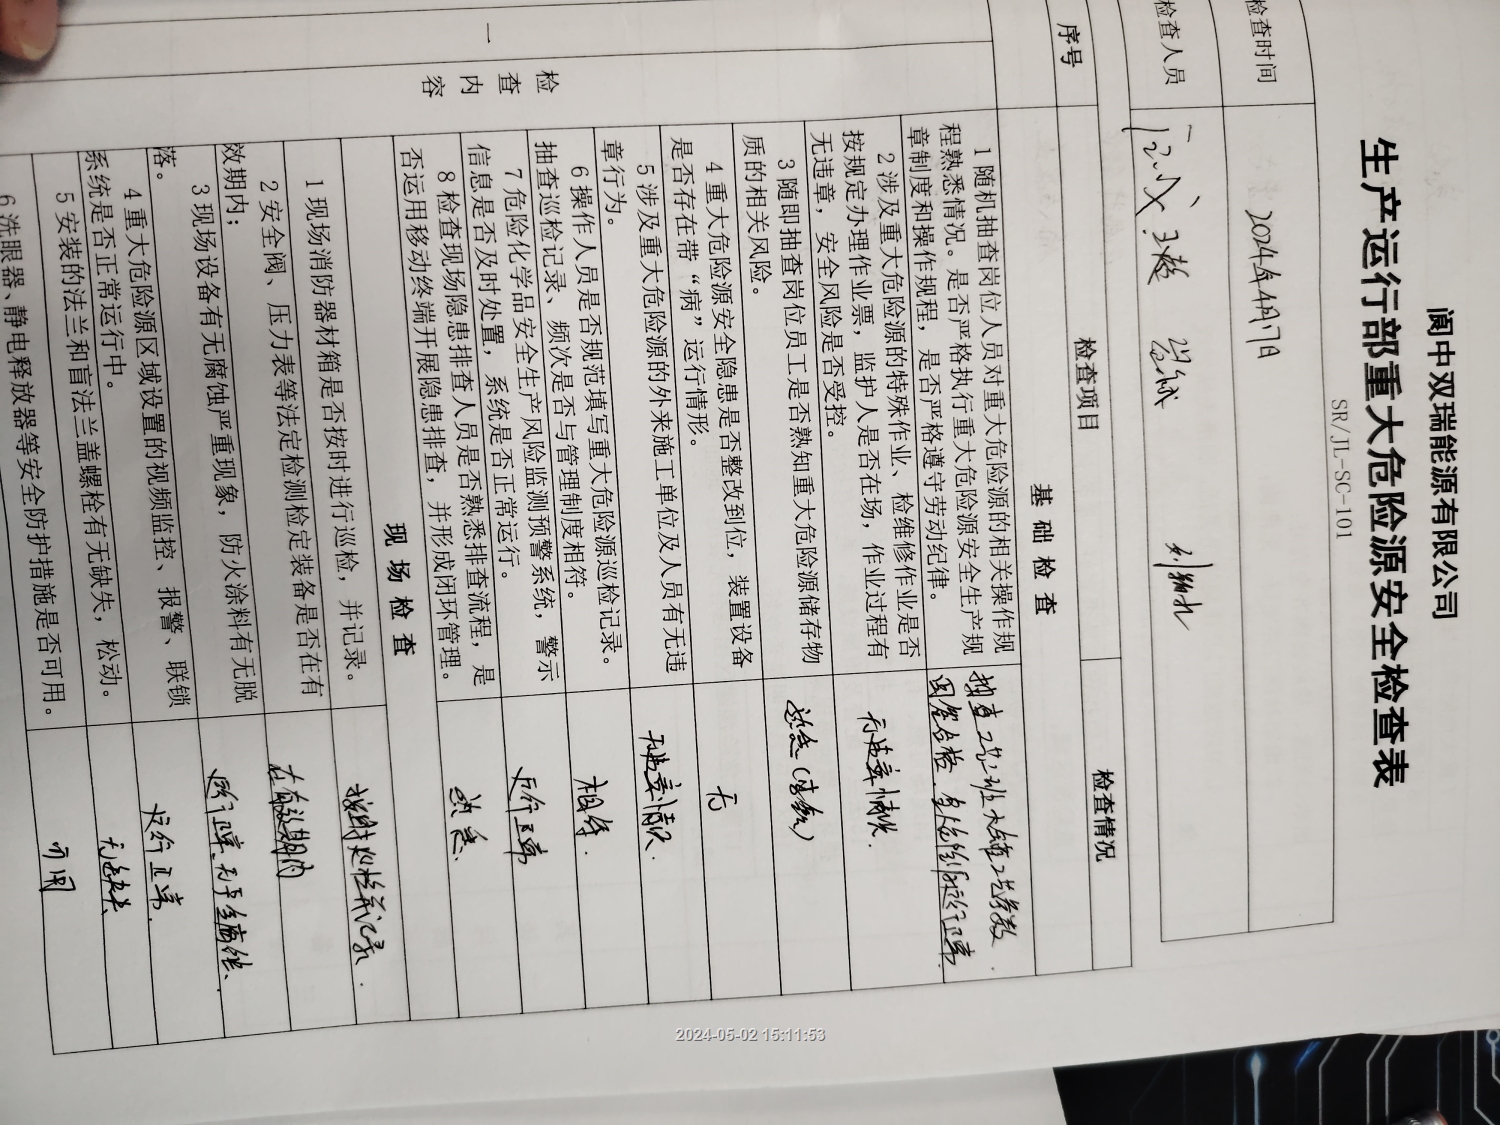 阆中双瑞能源有限公司
生产运行部重大危险源安全检查表
SR/JL-SC-101
检查时间 2024年4月17日
检查人员
序号 检查项目 检查情况
基础检查
一
检查内容
1 随机抽查岗位人员对重大危险源的相关操作规
程熟悉情况。是否严格执行重大危险源安全生产规
章制度和操作规程，是否严格遵守劳动纪律。
2 涉及重大危险源的特殊作业、检维修作业是否
按规定办理作业票，监护人是否在场，作业过程有
无违章，安全风险是否受控。
无违章情况.
3 随即抽查岗位员工是否熟知重大危险源储存物
质的相关风险。
4 重大危险源安全隐患是否整改到位，装置设备
是否存在带“病”运行情形。
无
5 涉及重大危险源的外来施工单位及人员有无违
章行为。
无违章情况.
6 操作人员是否规范填写重大危险源巡检记录。
抽查巡检记录、频次是否与管理制度相符。
相符.
7 危险化学品安全生产风险监测预警系统，警示
信息是否及时处置，系统是否正常运行。
运行正常
8 检查现场隐患排查人员是否熟悉排查流程，是
否运用移动终端开展隐患排查，并形成闭环管理。
熟悉.
现场检查
1 现场消防器材箱是否按时进行巡检，并记录。
按时巡检并记录.
2 安全阀、压力表等法定检测检定装备是否在有
效期内；
在有效期内
3 现场设备有无腐蚀严重现象，防火涂料有无脱
落。
4 重大危险源区域设置的视频监控、报警、联锁
系统是否正常运行中。
运行正常.
5 安装的法兰和盲法兰盖螺栓有无缺失，松动。
无缺失
6 洗眼器、静电释放器等安全防护措施是否可用。
可用
2024-05-02 15:11:53